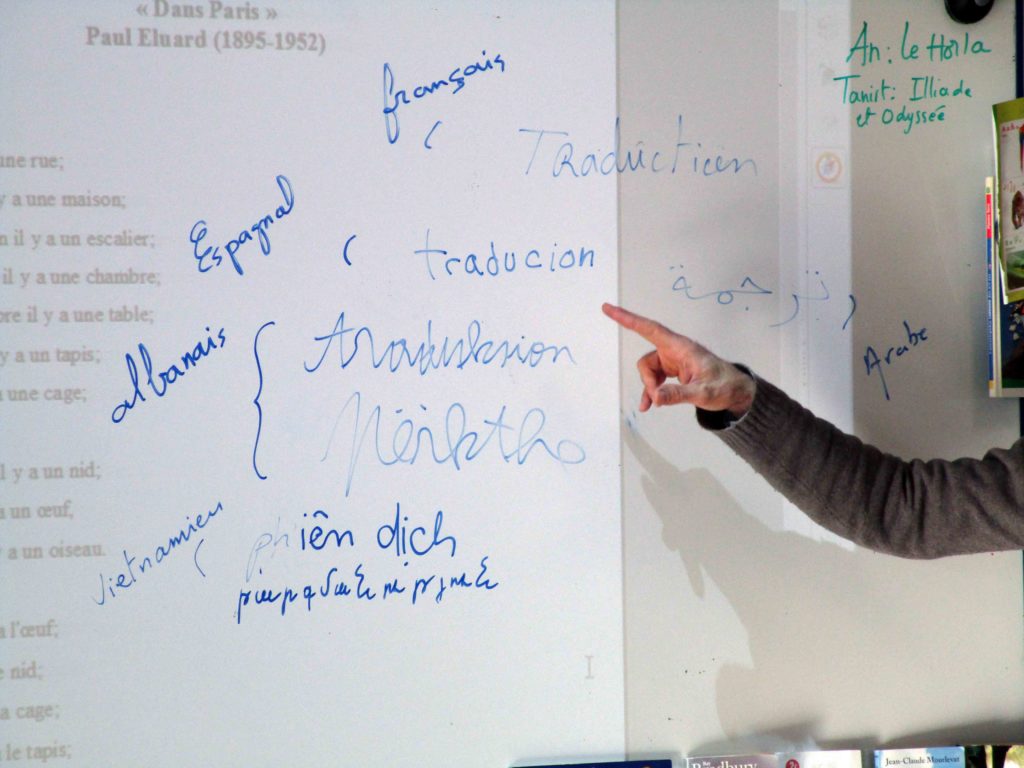 « Dans Paris »
Paul Eluard (1895-1952)
une rue;
y a une maison;
n il y a un escalier;
il y a une chambre;
bre il y a une table;
y a un tapis;
une cage;
il y a un nid;
a un œuf,
y a un oiseau.
a l'œuf;
e nid;
a cage;
le tapis;
français ( Traductieen
Espagnol ( traducion
ترجمة
Arabe
albanais { traduksion
Vietnamien ( phiên dịch
An: Le Horla
Tanirt: Illiade
et Odyssée
Bradbury
Jean-Claude Mourlevat